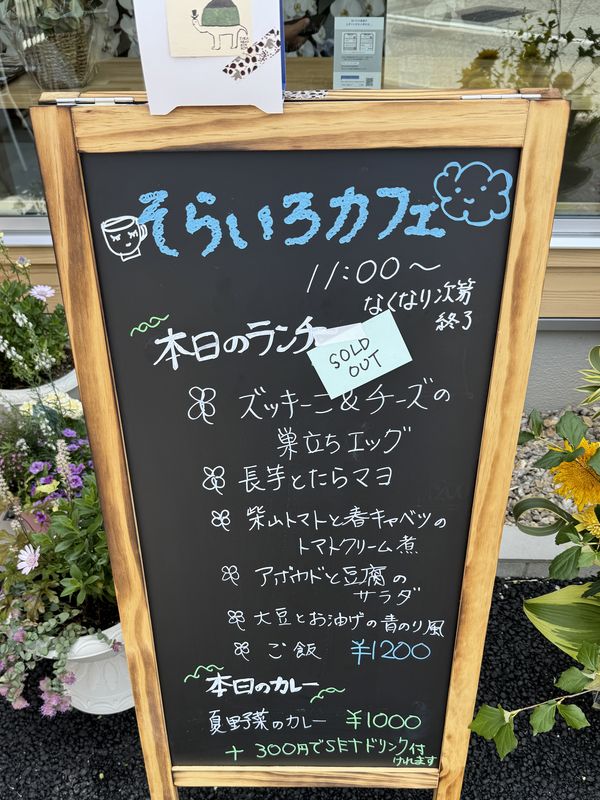 そらいろカフェ
11:00〜
なくなり次第
終了
本日のランチ
SOLD
OUT
ズッキーニ&チーズの
巣立ちエッグ
長芋とたらマヨ
柴山トマトと春キャベツの
トマトクリーム煮
アボカドと豆腐の
サラダ
大豆とお油げの青のり風
ご飯 ¥1200
本日のカレー
夏野菜のカレー ¥1000
+ 300円でSETドリンク付
けれます